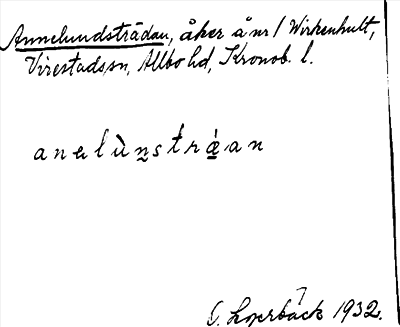 Annelundsträdan, åker å nr 1 Wirkenhult,
Virestads sn, Allbo hd, Kronob. l.
anelùnstrǽan
1932.